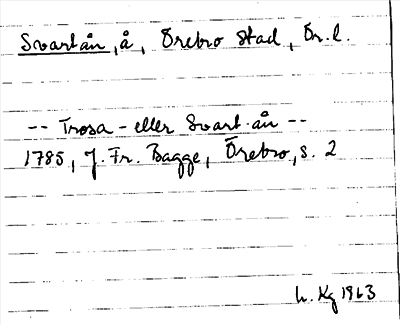 Svartån, å, Örebro stad, Ör. l.
-- Trosa - eller Svart-ån --
1785, J. Fr. Bagge, Örebro, s. 2
L. Kg 1963